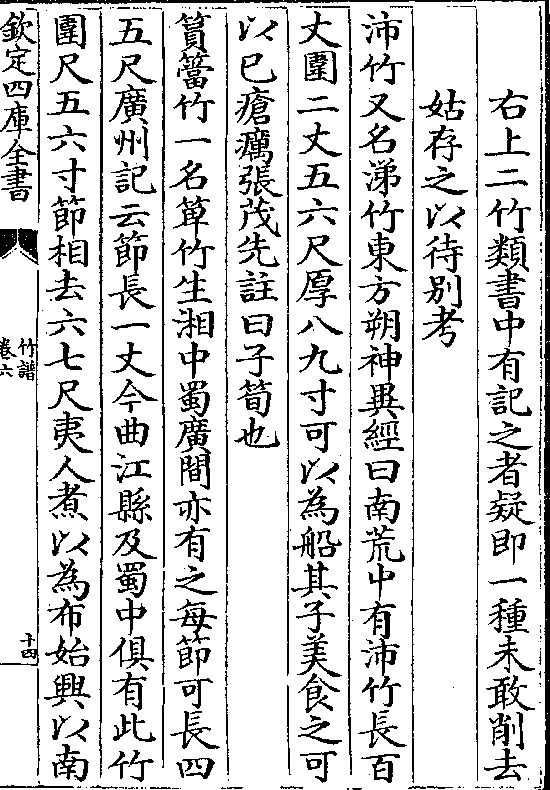 右上二竹類書中有記之者疑即一種未敢削去
姑存之以待别考
沛竹又名涕竹東方朔神異經曰南荒中有沛竹長百
丈圍二丈五六尺厚八九寸可以為船其子美食之可
以已瘡癘張茂先註曰子筍也
篔簹竹一名篻竹生湘中蜀廣間亦有之每節可長四
五尺廣州記云節長一丈今曲江縣及蜀中俱有此竹
圍尺五六寸節相去六七尺夷人煮以為布始興以南
欽定四庫全書
竹譜
卷六
十四